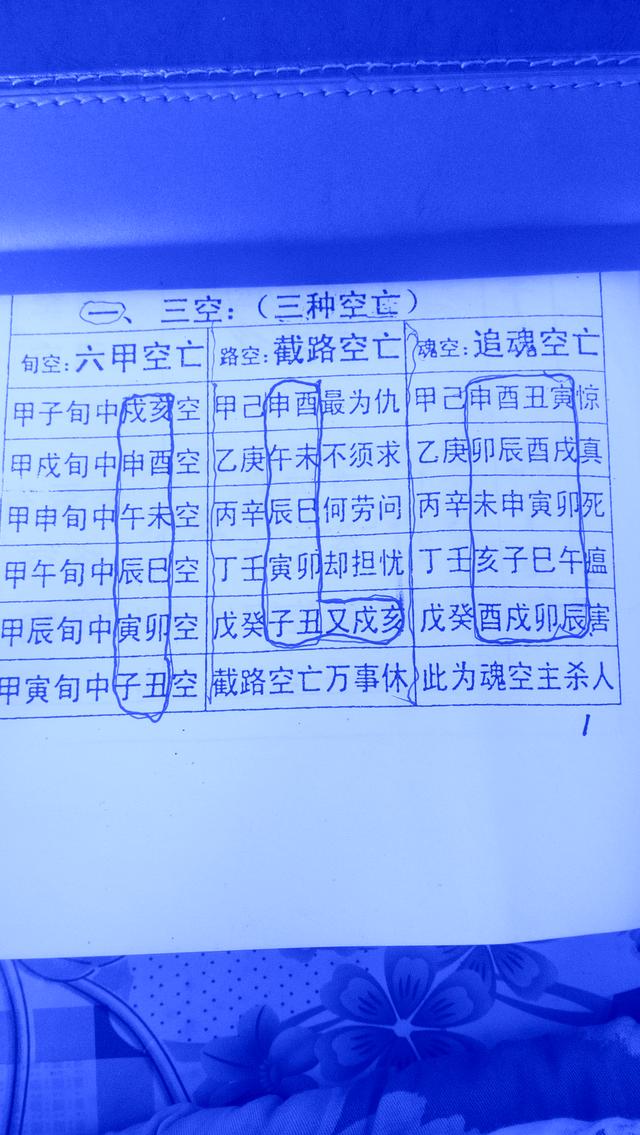 一、三空：（三种空亡）
旬空：六甲空亡 路空：截路空亡 魂空：追魂空亡
甲子旬中戌亥空 甲己申酉最为仇 甲己申酉丑寅惊
甲戌旬中申酉空 乙庚午未不须求 乙庚卯辰酉戌真
甲申旬中午未空 丙辛辰巳何劳问 丙辛未申寅卯死
甲午旬中辰巳空 丁壬寅卯却担忧 丁壬亥子巳午瘟
甲辰旬中寅卯空 戊癸子丑又戌亥 戊癸酉戌卯辰害
甲寅旬中子丑空 截路空亡万事休 此为魂空主杀人
1